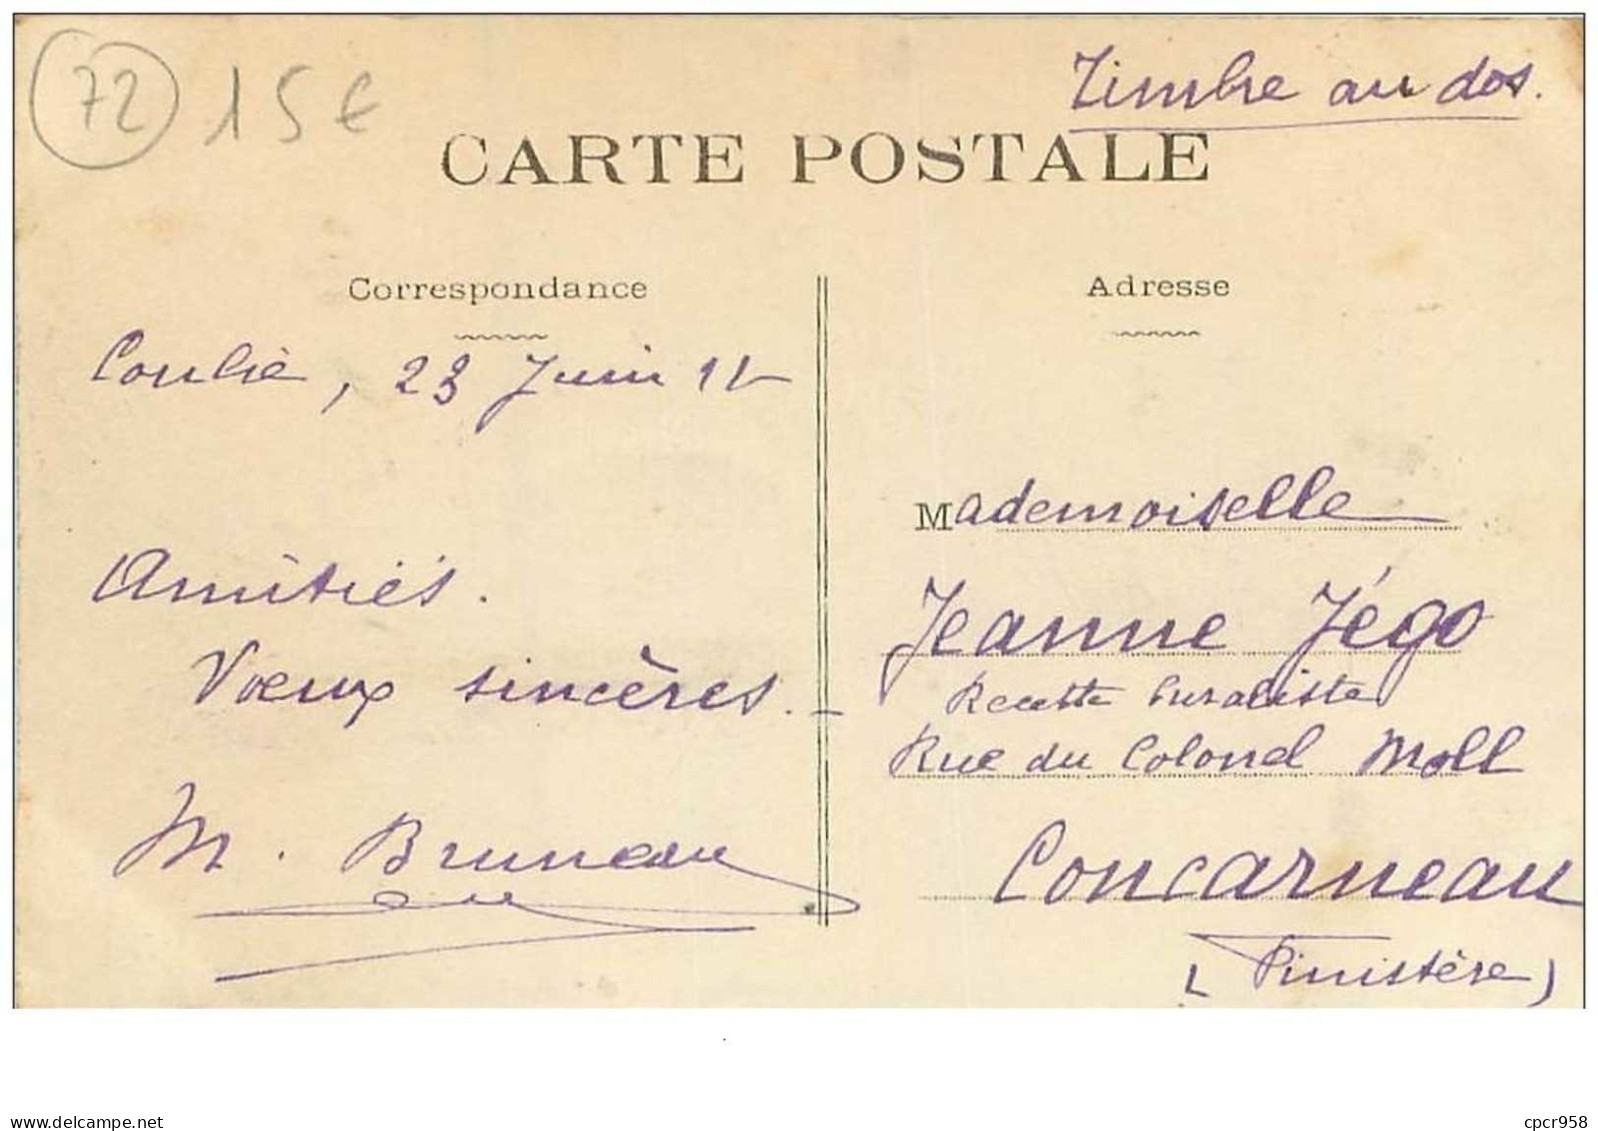 72 15€
Timbre au dos.
CARTE POSTALE
Correspondance
Adresse
Conlie, 23 Juin 11
Amitiés.
Vœux sincères.
M. Bruneau
Mademoiselle
Jeanne Jégo
Recette buraliste
Rue du Colonel Moll
Concarneau
(Finistère)
delcampe.net
cpcr958